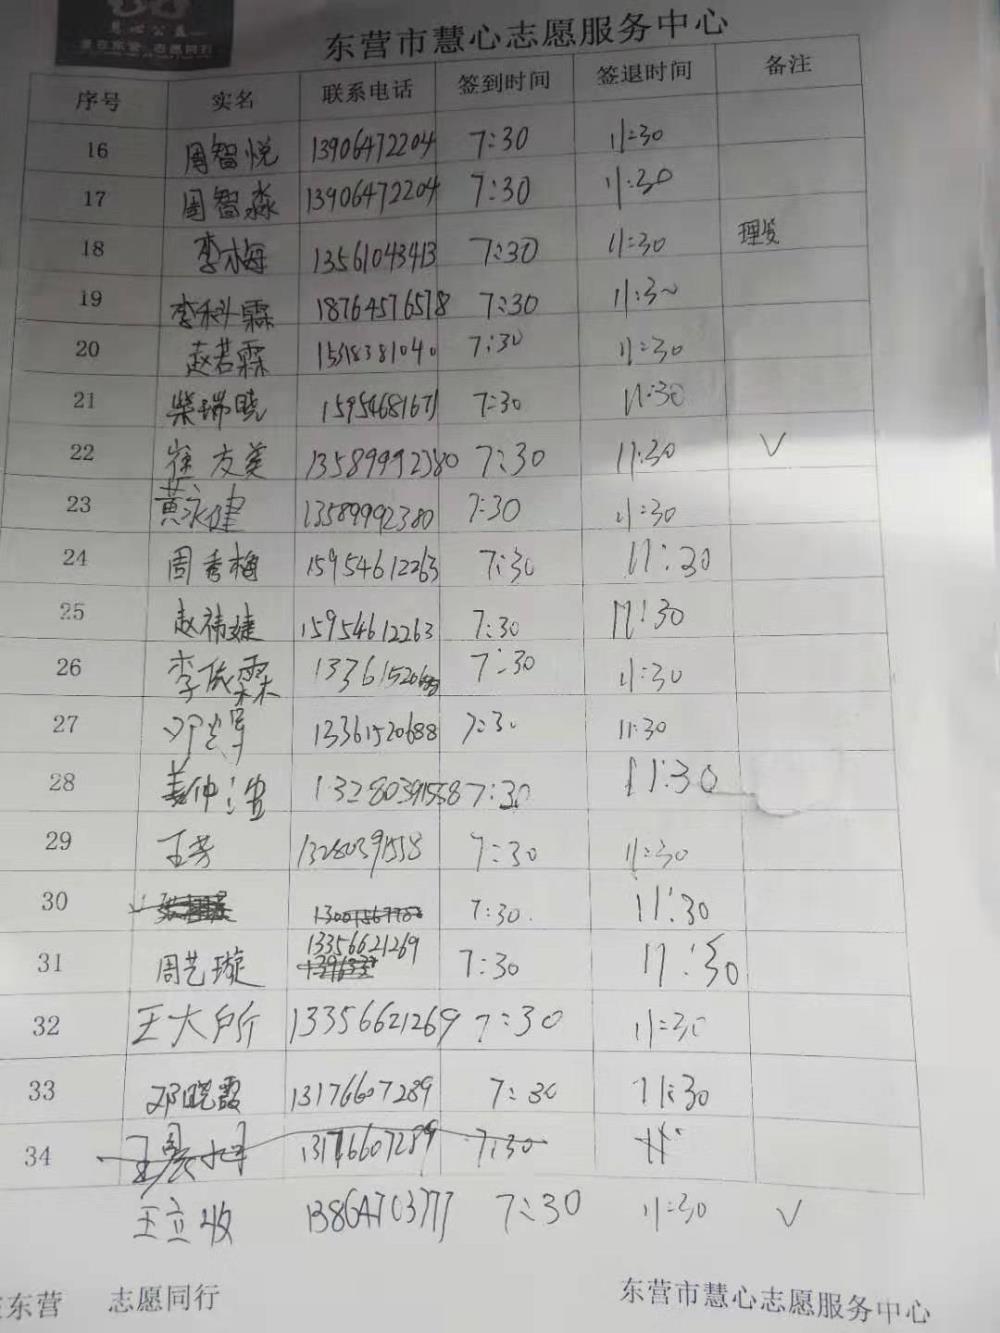 慧心公益
爱在东营 志愿同行
东营市慧心志愿服务中心
序号 实名 联系电话 签到时间 签退时间 备注
16 周智悦 13906472204 7:30 11:30
17 周智淼 13906472204 7:30 11:30
18 李梅 13561043413 7:30 11:30 理发
19 李科霖 18764576578 7:30 11:30
20 赵若霖 7:30 11:30
21 柴瑞晓 15954681671 7:30 11:30
22 崔友英 13589992380 7:30 11:30 √
23 黄永健 13589992380 7:30 11:30
24 周秀梅 15954612263 7:30 11:30
25 赵祎婕 15954612263 7:30 11:30
26 李依霖 7:30 11:30
27 13361520688 7:30 11:30
28 姜仲 13280391558 7:30 11:30
29 王芳 13280391558 7:30 11:30
30 7:30 11:30
31 周艺璇 13356621269 7:30 11:30
32 王大所 13356621269 7:30 11:30
33 邓晓霞 13176607289 7:30 11:30
34 13176607289 7:30
王立收 13864703777 7:30 11:30 √
东营 志愿同行
东营市慧心志愿服务中心